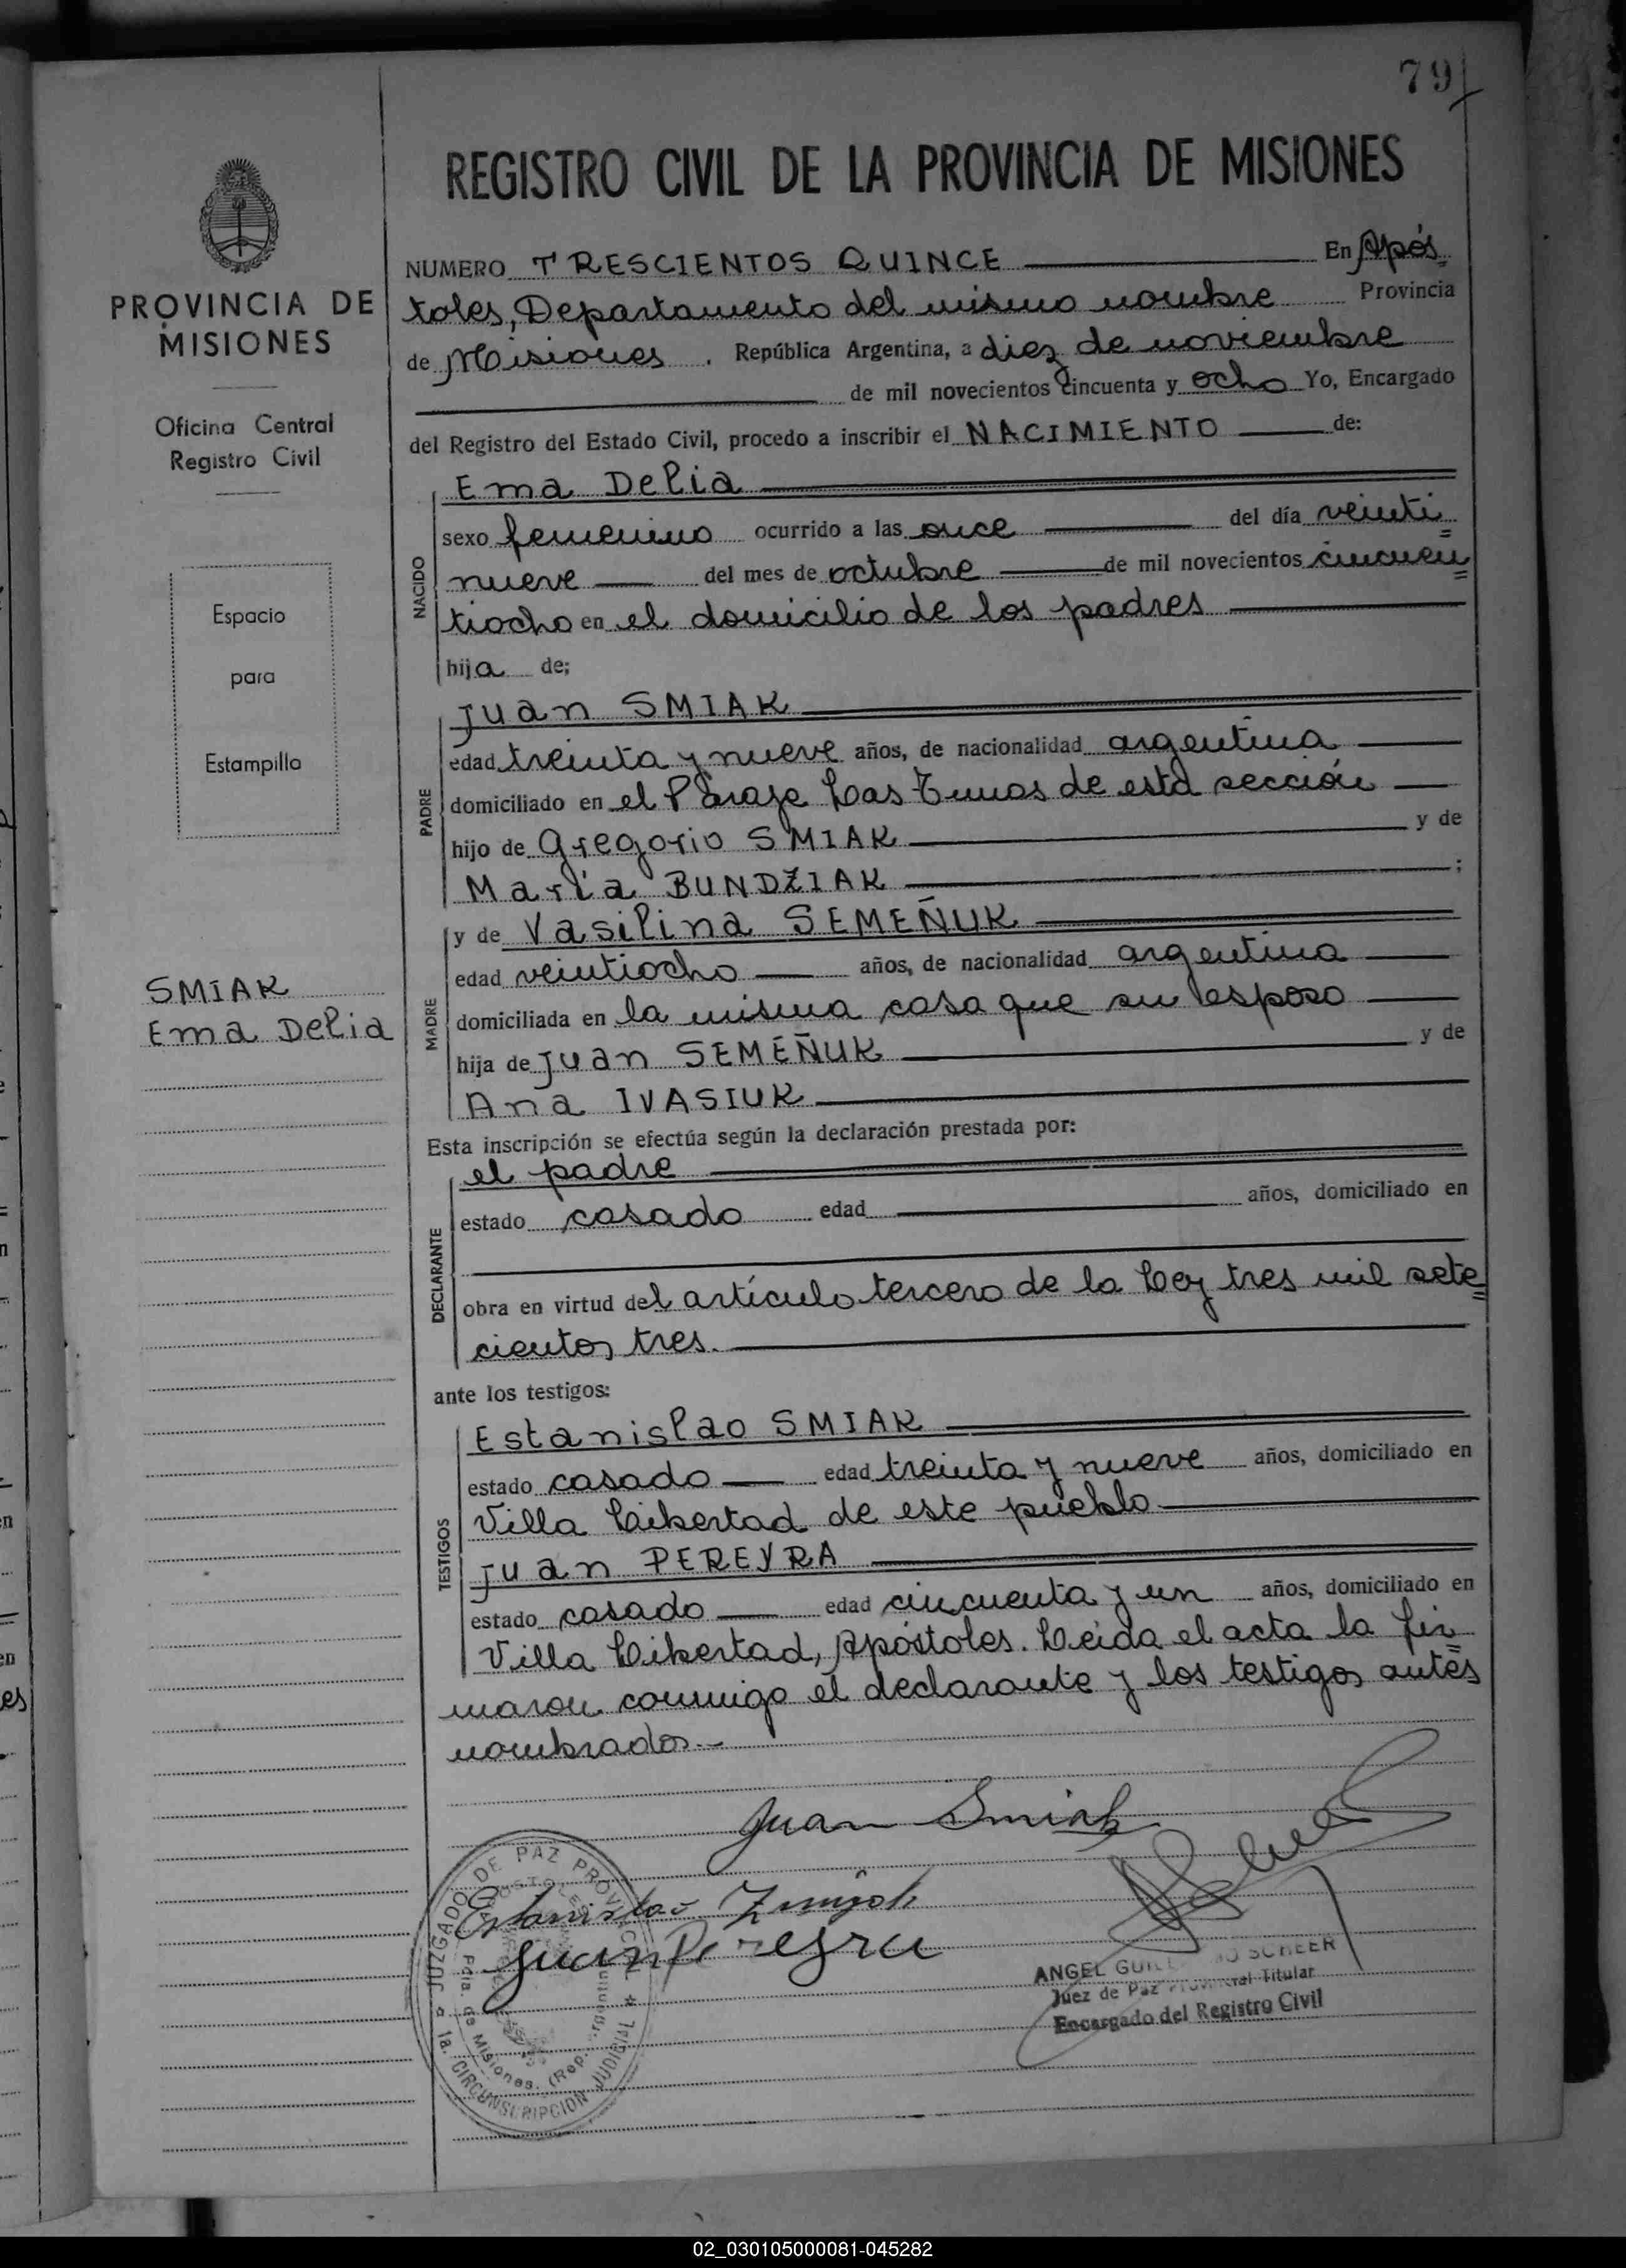 79
REGISTRO CIVIL DE LA PROVINCIA DE MISIONES
PROVINCIA DE
MISIONES
Oficina Central
Registro Civil
Espacio
para
Estampilla
SMIAK
Ema Delia
NUMERO TRESCIENTOS QUINCE En Após=
toles, Departamento del mismo nombre Provincia
de Misiones . República Argentina, a diez de noviembre
de mil novecientos cincuenta y ocho Yo, Encargado
del Registro del Estado Civil, procedo a inscribir el NACIMIENTO de:
NACIDO
Ema Delia
sexo femenino ocurrido a las once del día veinti=
nueve del mes de octubre de mil novecientos cincuen=
tiocho en el domicilio de los padres
hija de;
PADRE
Juan SMIAK
edad treinta y nueve años, de nacionalidad argentina
domiciliado en el Paraje Las Tunas de esta sección
hijo de Gregorio SMIAK y de
María BUNDZIAK ;
MADRE
y de Vasilina SEMEÑUK
edad veintiocho años, de nacionalidad argentina
domiciliada en la misma casa que su esposo
hija de Juan SEMEÑUK y de
Ana IVASIUK
Esta inscripción se efectúa según la declaración prestada por:
DECLARANTE
el padre
estado casado edad años, domiciliado en
obra en virtud del artículo tercero de la Ley tres mil sete=
cientos tres.
ante los testigos:
TESTIGOS
Estanislao SMIAK
estado casado edad treinta y nueve años, domiciliado en
Villa Libertad de este pueblo
Juan PEREYRA
estado casado edad cincuenta y un años, domiciliado en
Villa Libertad, Apóstoles. Leída el acta la fir=
maron conmigo el declarante y los testigos antes
nombrados.-
Juan Smiak
Estanislao
Juan Pereyra
JUZGADO DE PAZ
1a. CIRCUNSCRIPCION JUDICIAL
Pcia. de Misiones. (Rep.
ANGEL SCHEER
Juez de Paz Titular
Encargado del Registro Civil
02_030105000081-045282